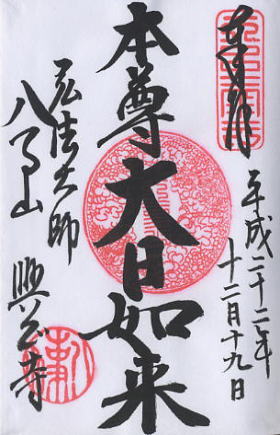 奉拝
平成二十二年
十二月十九日
本尊大日如来
弘法大師
八事山 興正寺